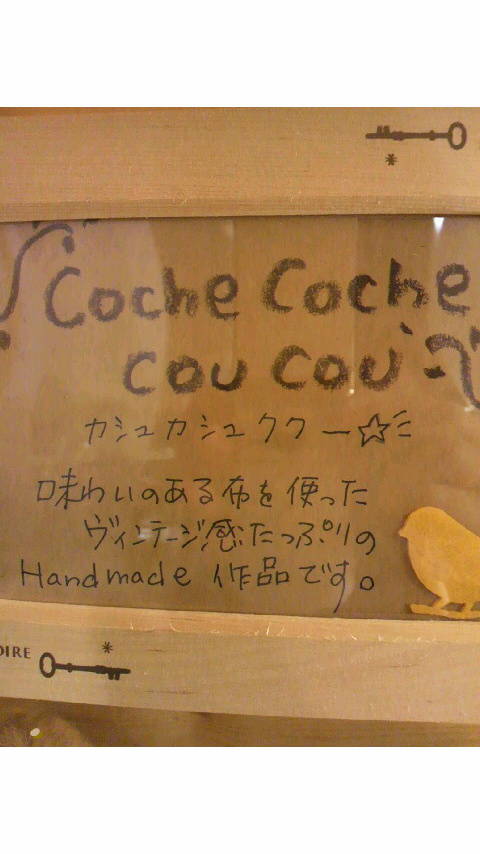 *
Coche Coche
cou cou
カシュカシュククー☆
味わいのある布を使った
ヴィンテージ感たっぷりの
Handmade 作品です。
OIRE
*